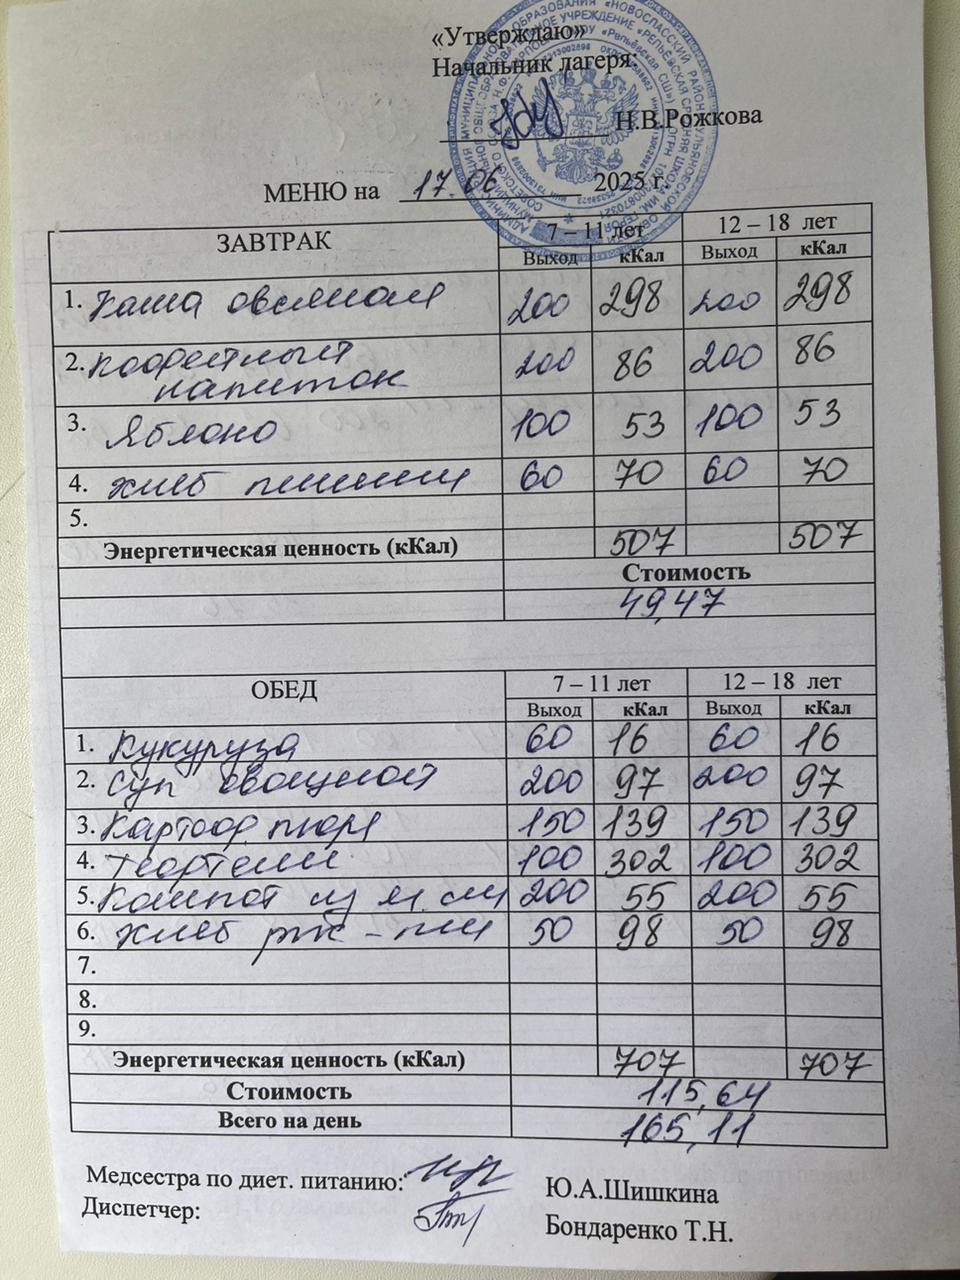 «Утверждаю»
Начальник лагеря:
Н.В.Рожкова
МЕНЮ на 17.06 2025 г.
ЗАВТРАК 7 – 11 лет 12 – 18 лет
Выход кКал Выход кКал
1. Каша овсяная 200 298 200 298
2. Кофейный напиток 200 86 200 86
3. Яблоко 100 53 100 53
4. хлеб пшенич 60 70 60 70
5.
Энергетическая ценность (кКал) 507 507
Стоимость
49,47
ОБЕД 7 – 11 лет 12 – 18 лет
Выход кКал Выход кКал
1. Кукуруза 60 16 60 16
2. Суп овощной 200 97 200 97
3. Картоф. пюре 150 139 150 139
4. Тефтели 100 302 100 302
5. Компот из 200 55 200 55
6. хлеб рж - пш 50 98 50 98
7.
8.
9.
Энергетическая ценность (кКал) 707 707
Стоимость 115,64
Всего на день 165,11
Медсестра по диет. питанию: Ю.А.Шишкина
Диспетчер: Бондаренко Т.Н.